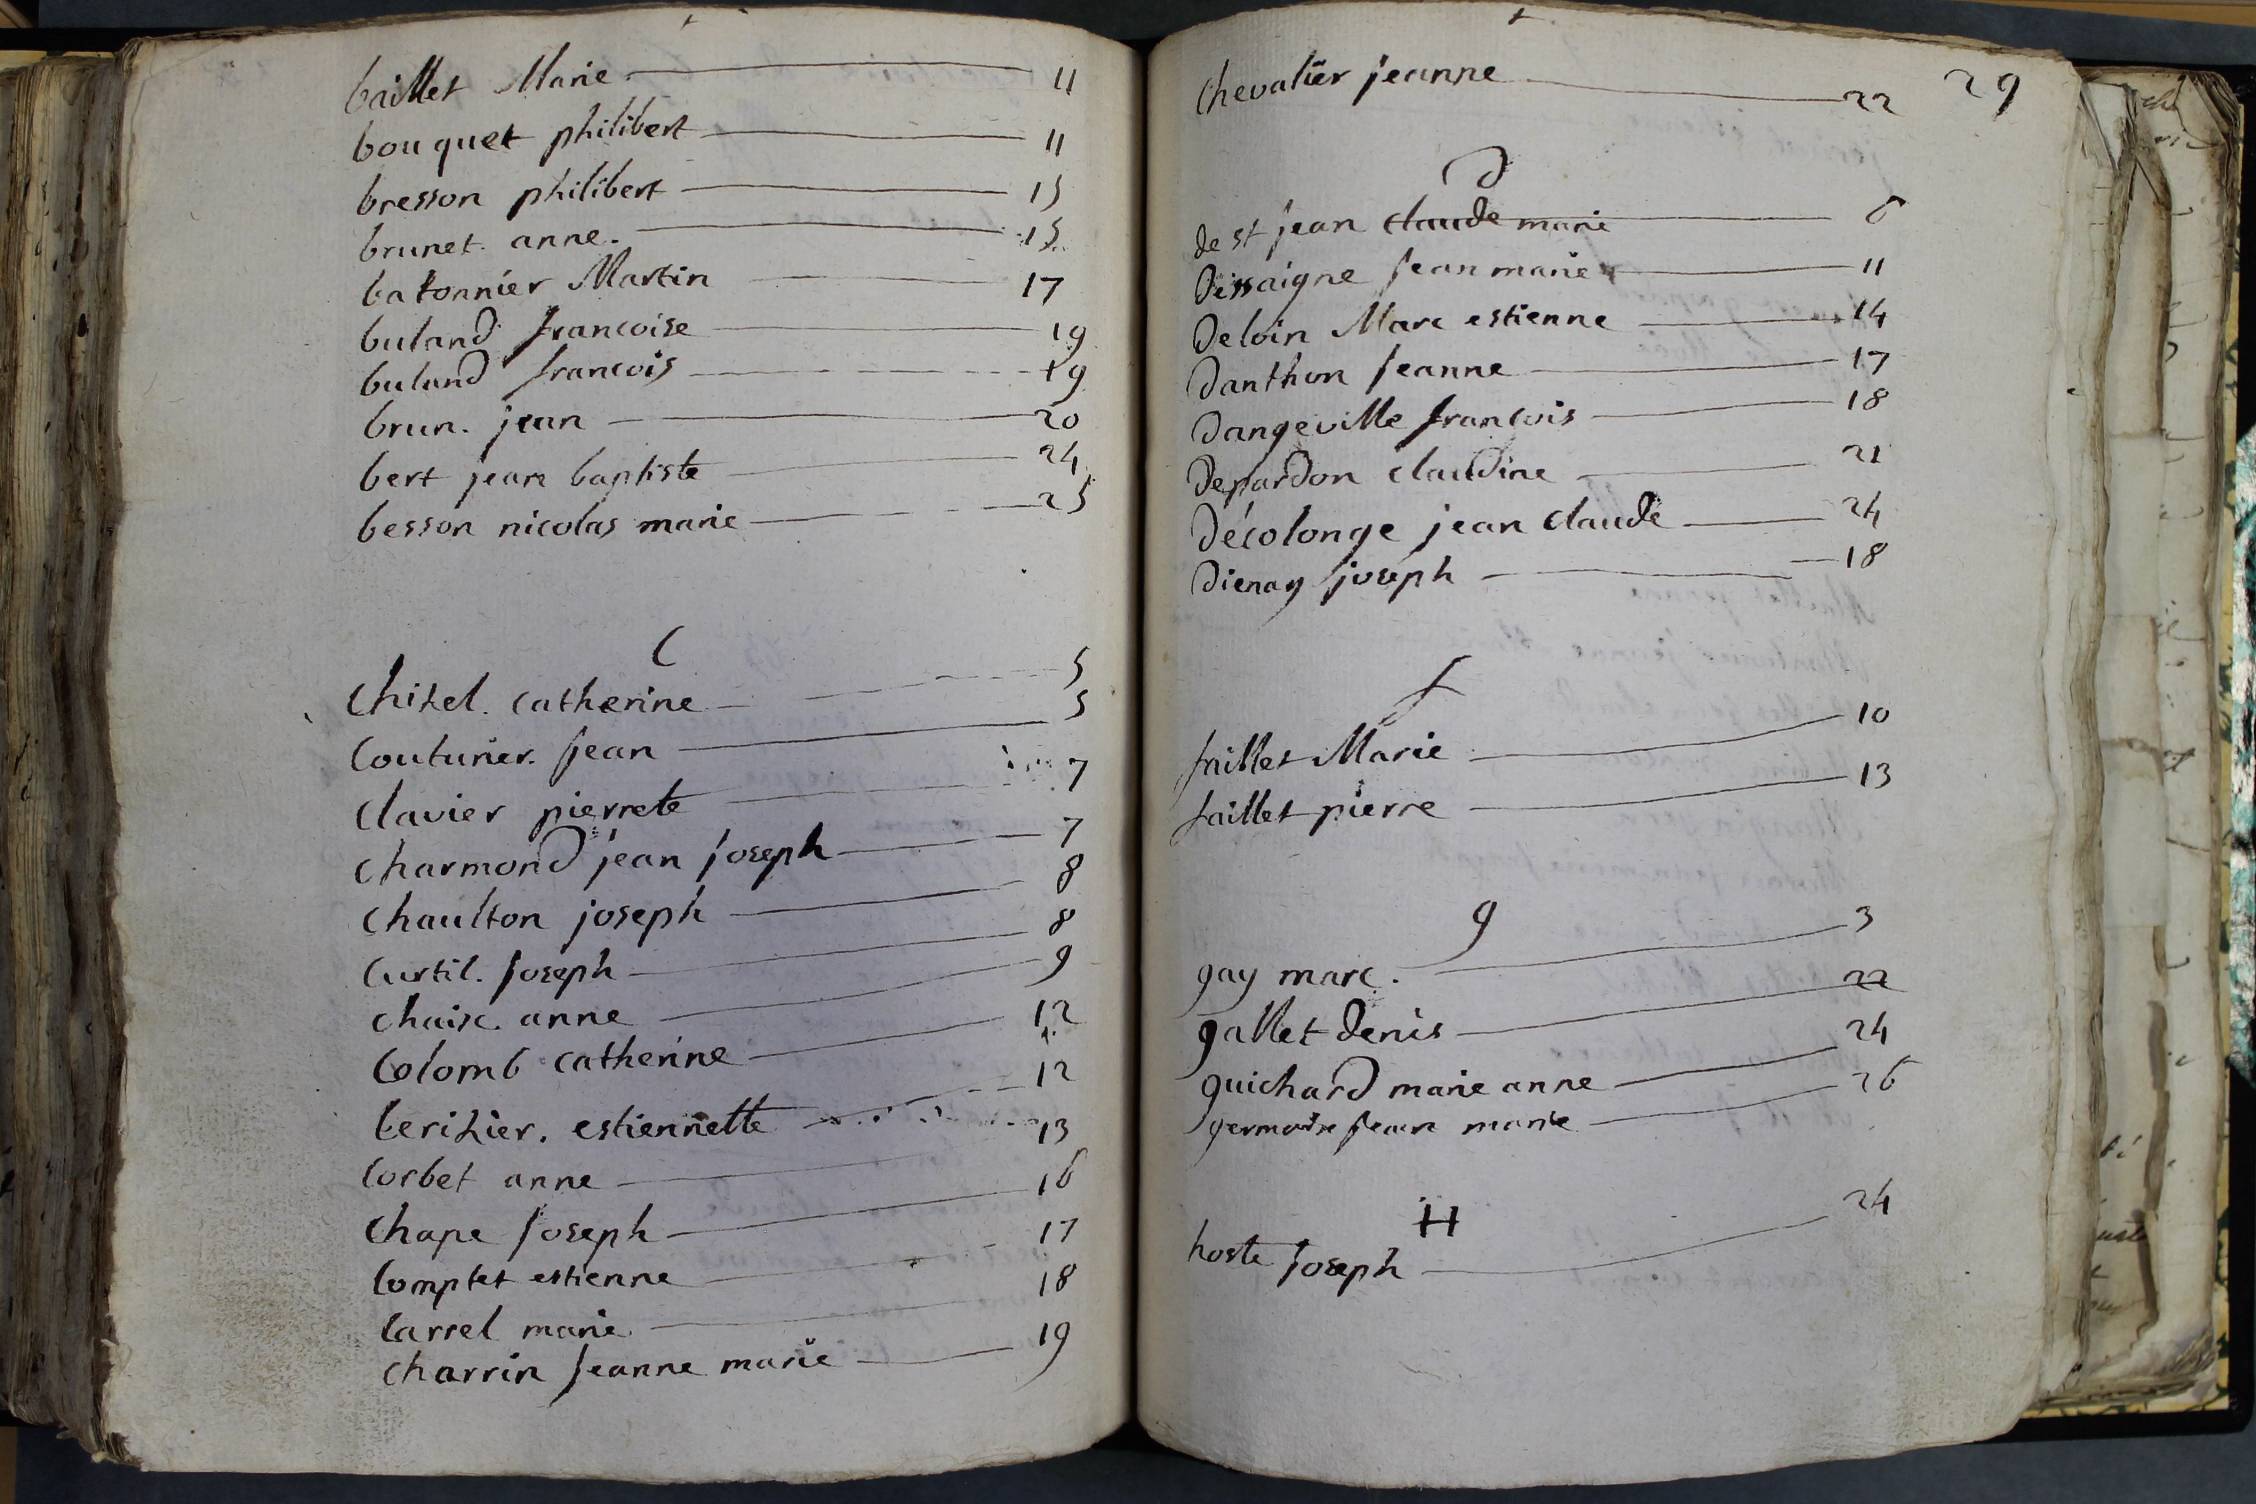 baillet Marie 11
bouquet philibert 11
bresson philibert 15
brunet. anne. 15
batonnier Martin 17
buland francoise 19
buland francois 19
brun. jean 20
bert jean baptiste 24
besson nicolas marie 25
C
Chizel. Catherine 5
Couturier. Jean 5
Clavier pierrete 7
Charmond jean Joseph 7
Chaulton joseph 8
Curtil. Joseph 8
Chaise anne 9
Colomb catherine 12
Cerizier. estiennette 12
Corbet anne 13
Chape Joseph 16
Comptet estienne 17
Carrel marie 18
Charrin Jeanne marie 19
29
Chevalier Jeanne 22
d
de st jean claude marie 6
Dissaigne Jean marie 11
Deloin Marc estienne 14
Danthon Jeanne 17
Dangeville francois 18
Depardon claudine 21
Décolonge jean claude 24
Dienay joseph 18
f
faillet Marie 10
faillet pierre 13
g
gay marc. 3
gallet denis 22
guichard marie anne 24
germain Jean marie 26
H
hoste Joseph 24